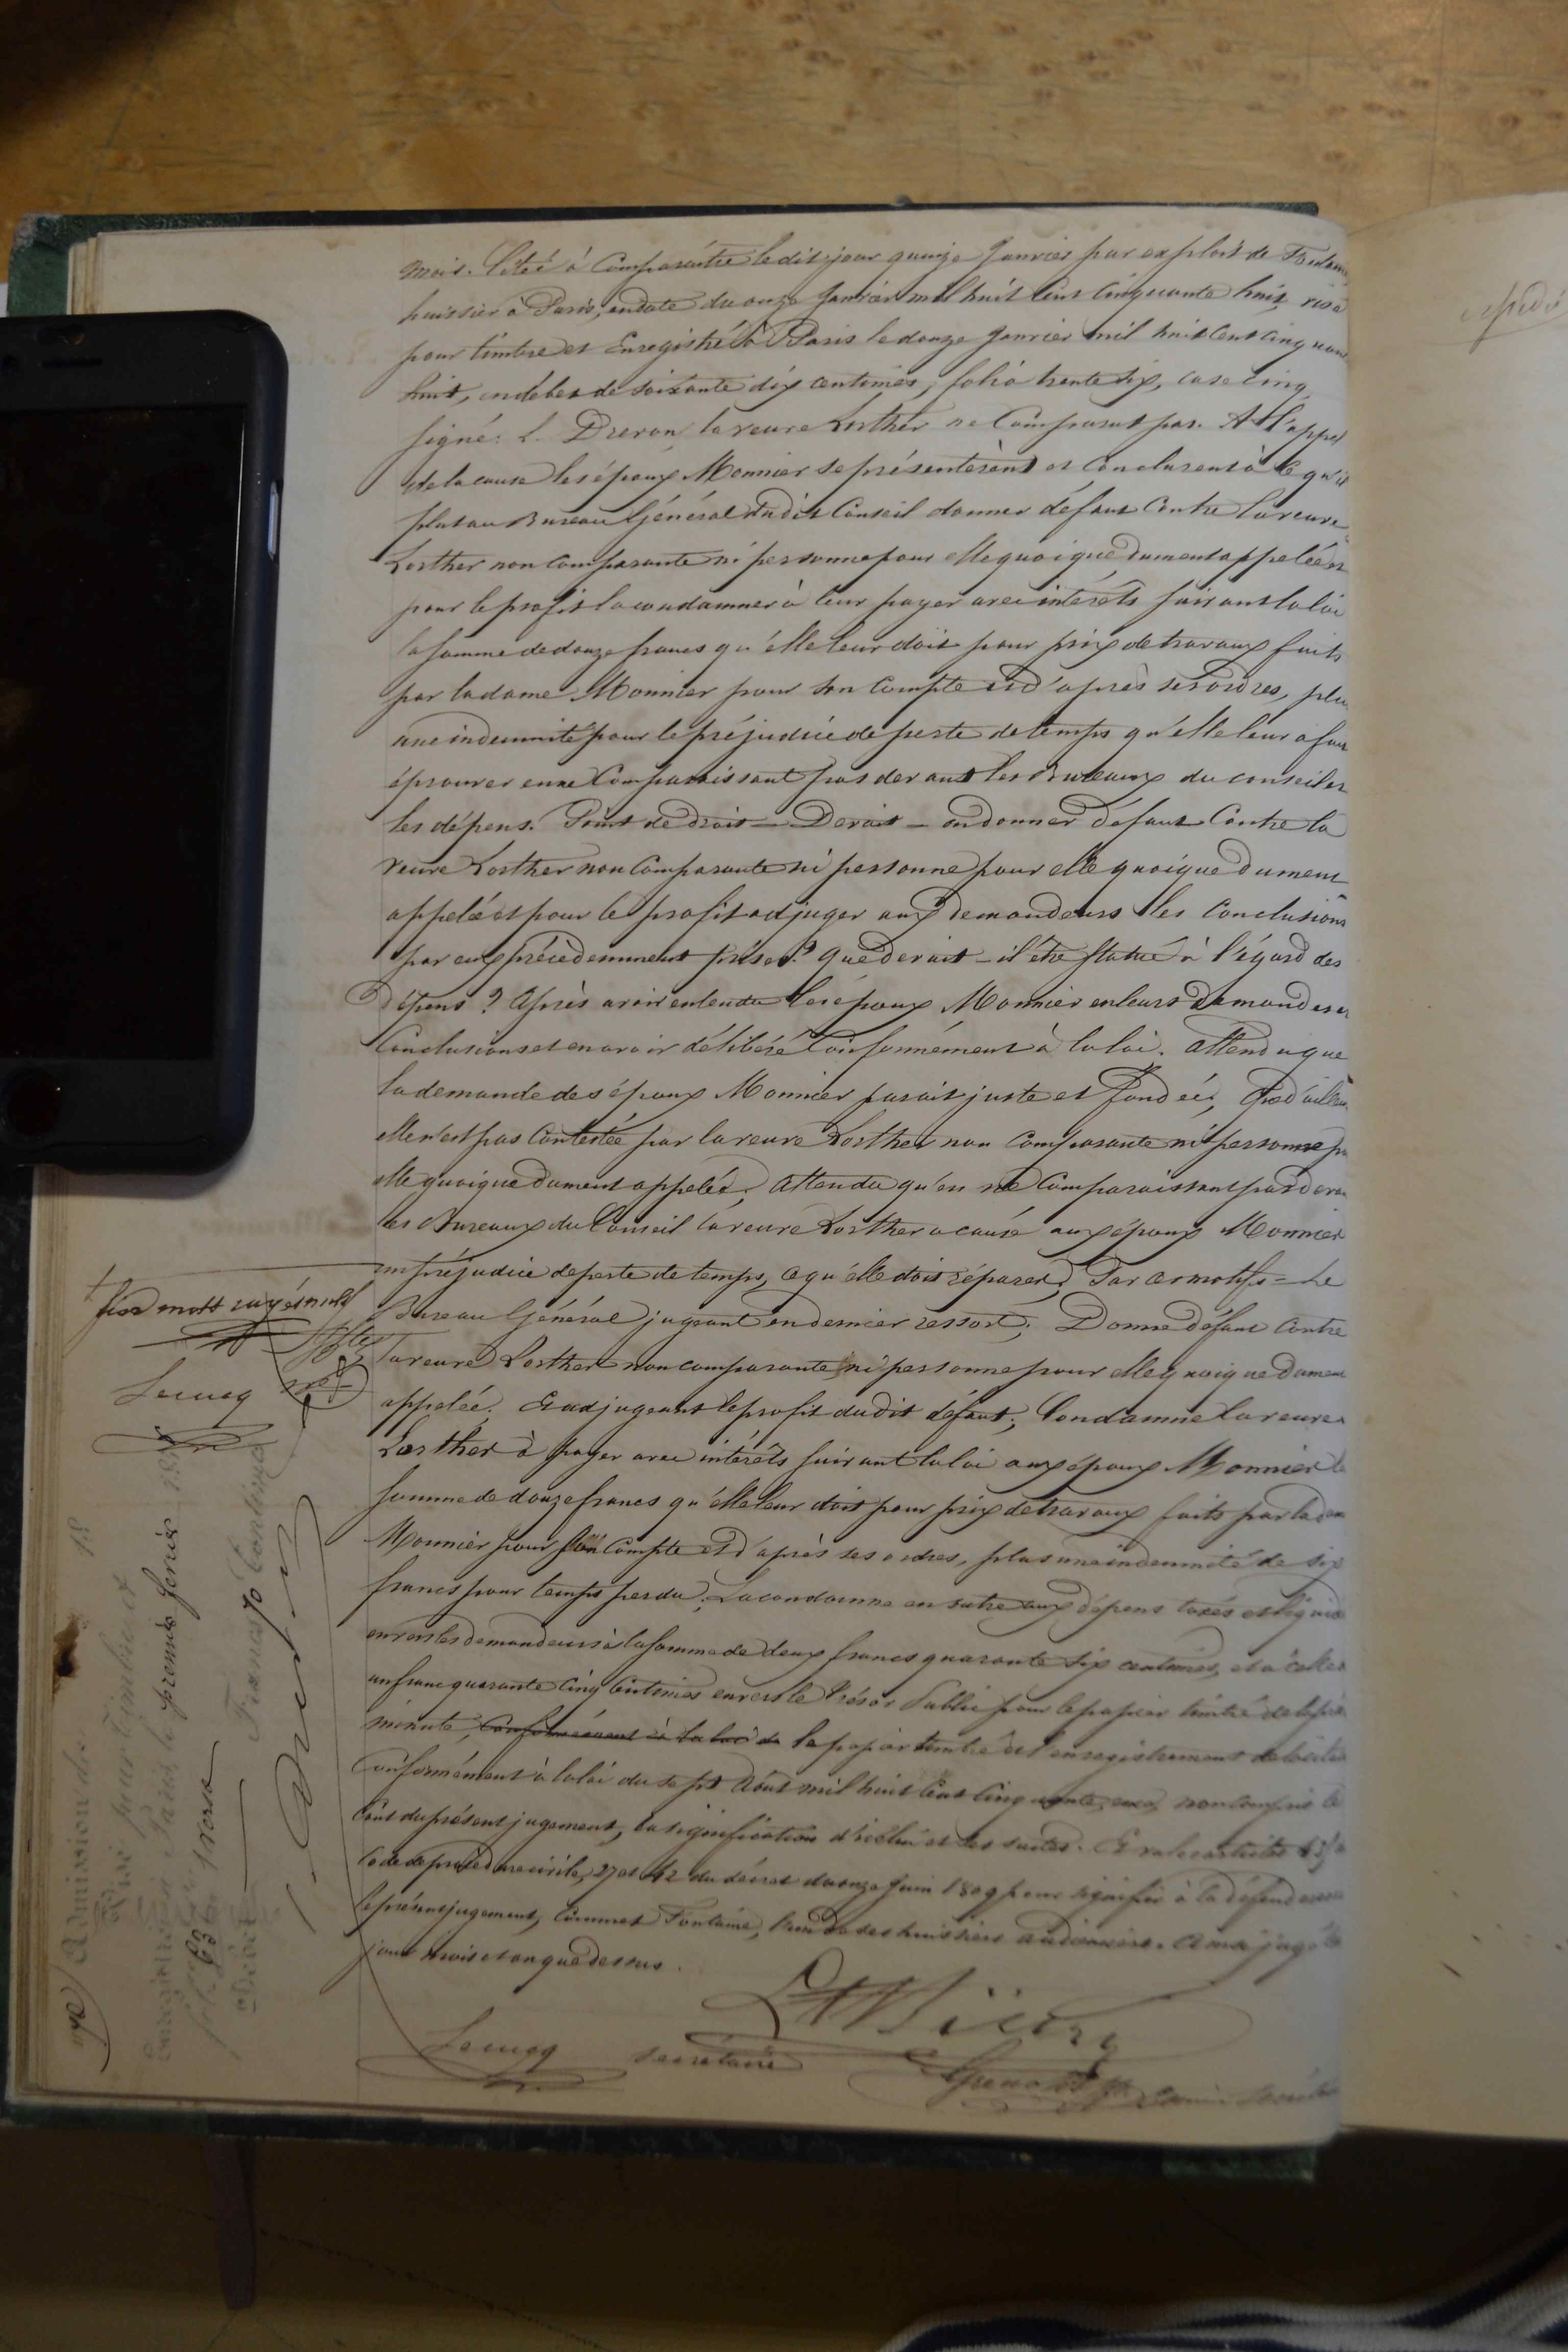 mois. Citée à Comparaître ledit jour quinze Janvier par exploit de Fontaine
huissier à Paris, en date du onze Janvier mil huit cent cinquante huit, visé
pour timbre et Enregistré à Paris le douze Janvier mil huit cent cinquante
huit, en débet de soixante dix centimes, folio trente six, case cinq,
signé: L. Drevon, la veuve Losther ne Comparut pas. A l'appel
de la cause les époux Monnier se présentèrent et Conclurent à ce qu'il
plut au Bureau Général dudit Conseil donner défaut Contre la veuve
Losther non comparante ni personne pour elle quoique dument appelée et
pour le profit la condamner à leur payer avec intérêts suivant la loi
la somme de douze francs qu'elle leur doit pour prix de travaux faits
par la dame Monnier pour son Compte et d'après ses ordres, plus
une indemnité pour le préjudice de perte de temps qu'elle leur a fait
éprouver en ne Comparaissant pas devant les Bureaux du conseil et
les dépens. Point de droit — Devait-on donner défaut Contre la
veuve Losther non Comparante ni personne pour elle quoique dument
appelée et pour le profit adjuger aux demandeurs les Conclusions
par eux précédemment prises? Que devait-il être statué à l'égard des
dépens? Après avoir entendu les époux Monnier en leurs demandes et
Conclusions et en avoir délibéré Conformément à la loi. Attendu que
la demande des époux Monnier parait juste et fondée; Que d'ailleurs
elle n'est pas Contestée par la veuve Losther non Comparante ni personne pr
elle quoique dument appelée; Attendu qu'en ne Comparaissant pas devant
les Bureaux du Conseil la veuve Losther a causé aux époux Monnier
un préjudice de perte de temps, ce qu'elle doit réparer; Par ces motifs = Le
Bureau Général jugeant en dernier ressort; Donne défaut Contre
la veuve Losther non comparante ni personne pour elle quoique dument
appelée. Et adjugeant le profit dudit défaut; Condamne la veuve
Losther à payer avec intérêts suivant la loi aux époux Monnier la
somme de douze francs qu'elle leur doit pour prix de travaux faits par la dame
Monnier pour son Compte et d'après ses ordres, plus une indemnité de six
francs pour temps perdu; La condamne en outre aux dépens taxés et liquidés
envers les demandeurs à la somme de deux francs quarante six centimes, et à celle de
un franc quarante cinq Centimes envers le Trésor Public pour le papier timbré de la présente
minute, Conformément à la loi de le papier timbré et l'enregistrement de la citation
Conformément à la loi du sept Août mil huit Cent Cinquante, non compris le
Coût du présent jugement, la signification d'icelui et les suites. Et vu les articles 435 du
Code de procédure civile, 27 et 42 du décret du onze Juin 1809 pour signifier à la défenderesse
le présent jugement, Commet Fontaine, l'un de ses huissiers audienciers. Ainsi jugé les
jour mois et an que dessus.
Lecucq secrétaire
mots rayés nuls
Lecucq
Visé pour Timbre et
Enregistré à Paris le premier février 185
f° 63 verso
Débet francs Centimes